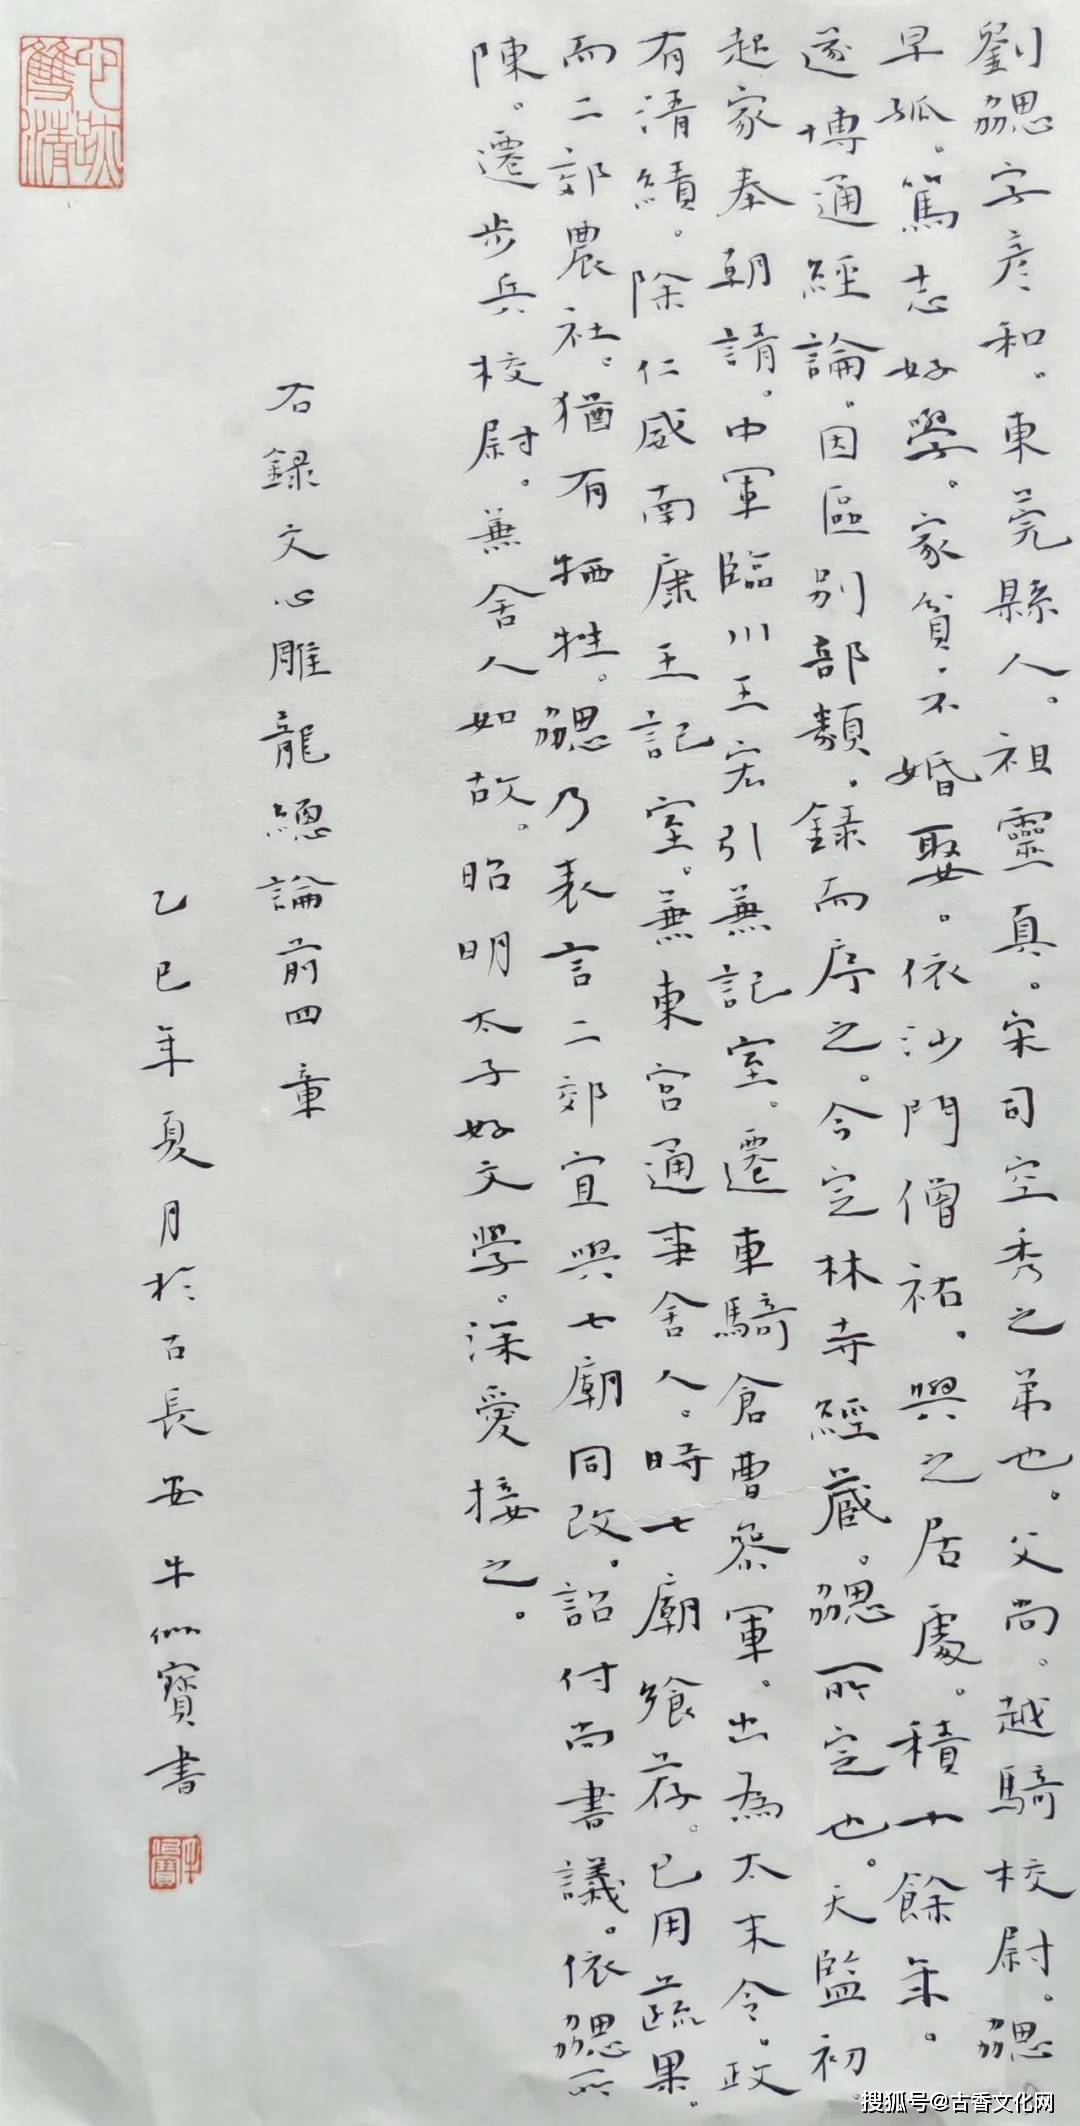 劉勰字彥和。東莞縣人。祖靈真。宋司空秀之弟也。父尚。越騎校尉。勰
早孤。篤志好學。家貧。不婚娶。依沙門僧祐。與之居處。積十餘年。
遂博通經論。因區別部類。錄而序之。今定林寺經蔵。勰所定也。天監初。
起家奉朝請。中軍臨川王宏引兼記室。遷車騎倉曹參軍。出為太末令。政
有清績。除仁威南康王記室。兼東宮通事舍人。時七廟饗荐。已用蔬果。
而二郊農社。猶有牺牲。勰乃表言二郊宜與七廟同改。詔付尚書議。依勰所
陳。遷步兵校尉。兼舍人如故。昭明太子好文學。深愛接之。
右録文心雕龍總論前四章
乙巳年夏月於古長安牛似寶書
搜狐号@古香文化网